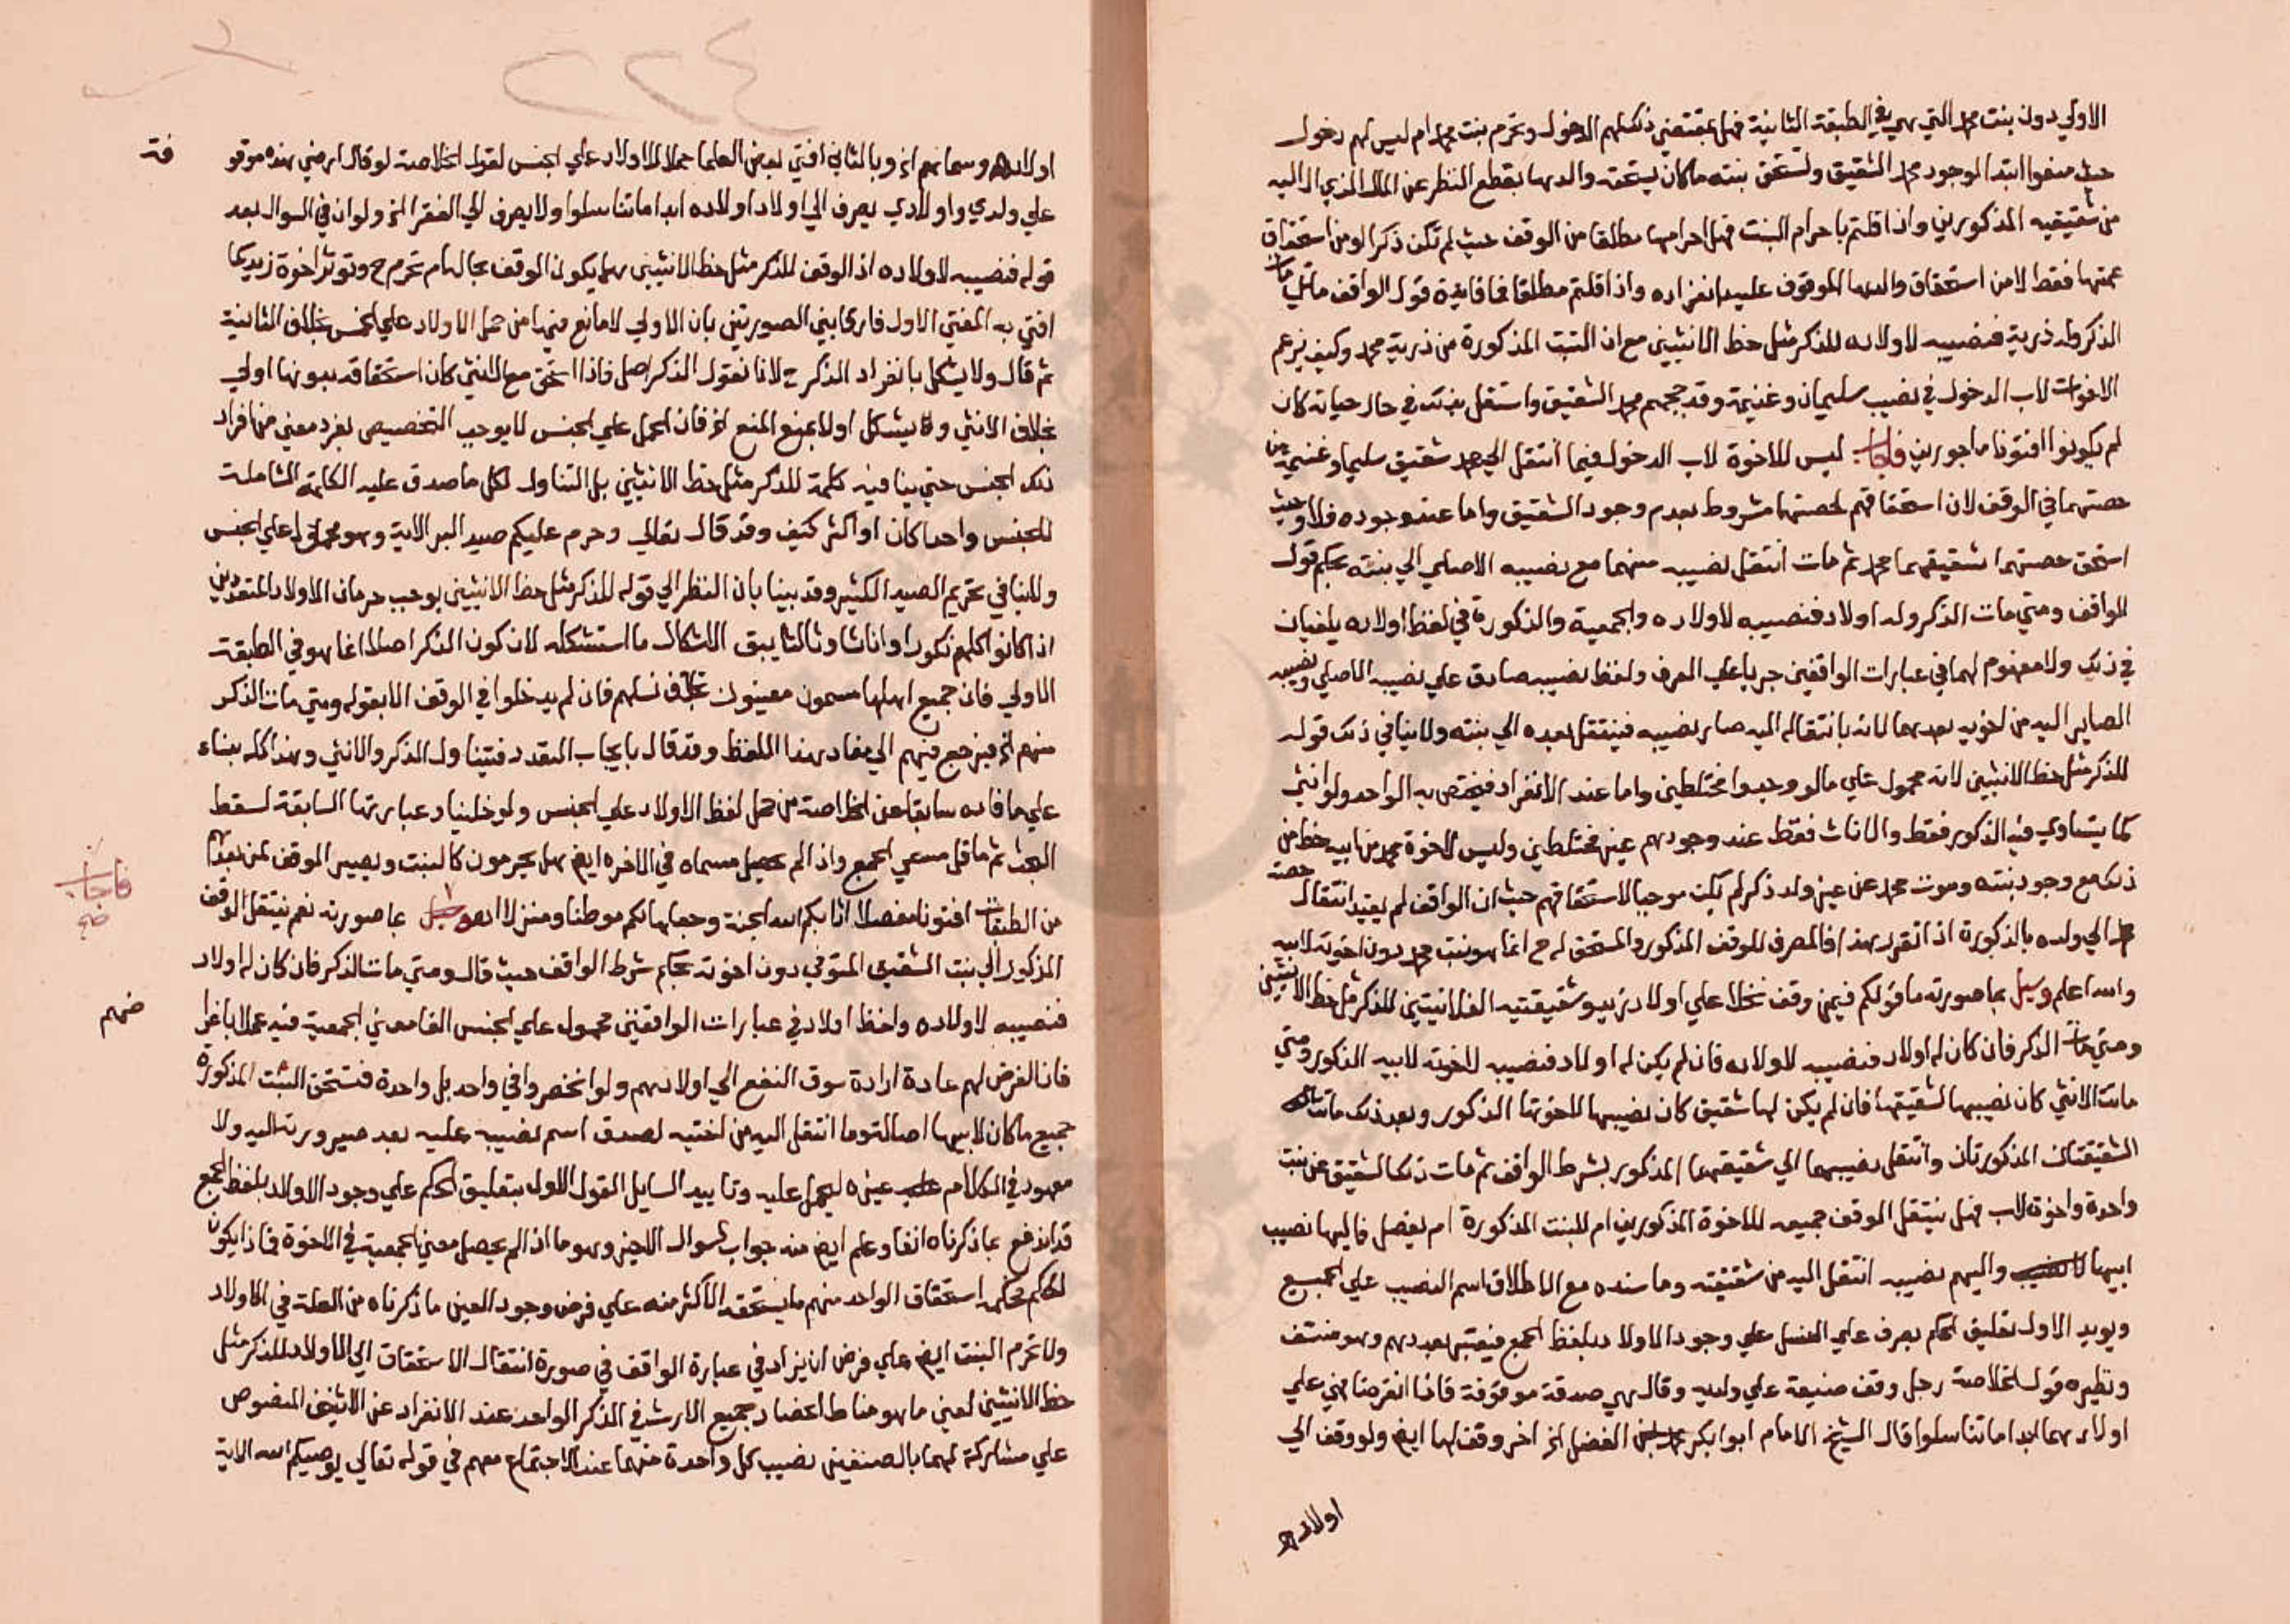 الاولي دون بنت محمد التي هي في الطبقة الثانية فهل بمقتضي ذلك لهم الدخول وتحرم بنت محمد ام ليس لهم دخول
حيث منعوا ابتدا لوجود محمد الشقيق وتستحق بنته ما كان يستحقه والدها بقطع النظر عن المال الذي ال اليه
من شقيقيه المذكورين واذا قلتم باحرام البنت فهل احرامها مطلقا من الوقف حيث لم تكن ذكرا او من استحقاق
عمتها فقط لا من استحقاق والدها الموقوف عليه انفراده واذا قلتم مطلقا فما فايدة قول الواقف متي مات
الذكر وله ذرية فنصيبه لاولاده للذكر مثل حظ الانثيين مع ان البنت المذكورة من ذرية محمد وكيف يزعم
الاخوات لاب الدخول في نصيب سليمان وغنيمة وقد حجبهم محمد الشقيق واستقل بذلك في حال حياته كان
لم يكونوا افتونا ماجورين فاجاب ليس للاخوة لاب الدخول فيما انتقل الي محمد شقيق سليمان وغنيمة من
حصتهما في الوقف لان استحقاقهم لحصتها مشروط بعدم وجود الشقيق واما عند وجوده فلا وحيث
استحق حصتهما شقيقهما محمد ثم مات انتقل نصيبه منهما مع نصيبه الاصلي الي بنته بحكم قول
الواقف ومتي مات الذكر وله اولاد فنصيبه لاولاده والجمعية والذكورة في لفظ اولاده يلغيان
في ذلك ولا مفهوم لهما في عبارات الواقفين جريا علي العرف ولفظ نصيبه صادق علي نصيبه الاصلي ونصيبه
الصاير اليه من اخويه بعدهما لانه بانتقاله اليه صار نصيبه فينتقل بعده الي بنته ولا ينافي ذلك قوله
للذكر مثل حظ الانثيين لانه محمول علي ما لو وجدوا مختلطين واما عند الانفراد فيختص به الواحد ولو انثي
كما يتساوي فيه الذكور فقط والاناث فقط عند وجودهم غير مختلطين وليس لاخوة محمد من ابيه حظ من
ذلك مع وجود بنته وموت محمد عن غير ولد ذكر لم يكن موجبا لاستحقاقهم حيث ان الواقف لم يقيد انتقال حصة
محمد الي ولده بالذكورة اذا تقرر هذا فالمصرف للوقف المذكور والمستحق له ح انما هو بنت محمد دون اخوته لابيه
والله اعلم وسيل بما صورته ما قولكم فيمن وقف نخلا علي اولاد زيد وشقيقتيه الفلانيتين للذكر مثل حظ الانثيين
ومتي مات الذكر فان كان له اولاد فنصيبه لاولاده فان لم يكن له اولاد فنصيبه لاخوته لابيه الذكور ومتي
ماتت الانثي كان نصيبها لشقيقها فان لم يكن لها شقيق كان نصيبها لاخوتها الذكور وبعد ذلك ماتت
الشقيقتان المذكورتان وانتقل نصيبهما الي شقيقهما المذكور بشرط الواقف ثم مات ذلك الشقيق عن بنت
واحدة واخوة لاب فهل ينتقل الوقف جميعه للاخوة المذكورين ام للبنت المذكورة ام يفصل فاليها نصيب
ابيها واليهم نصيبه انتقل اليه من شقيقته وما سنده مع الاطلاق اسم النصيب علي الجميع
ويويد الاول تعليق الحكم بصرف علي النسل علي وجود الاولاد بلفظ الجمع فيعتبر بعددهم وهو منتف
ونظيره قول الخلاصة رجل وقف ضيعة علي ولديه وقال هي صدقة موقوفة فاذا انقرضا فهي علي
اولادهما ابدا ما تناسلوا قال الشيخ الامام ابو بكر محمد بن الفضل الخ اخر وقف لها ايض ولو وقف الي
اولاده
٢٢٤
اولاده وسماهم الخ وبالثاني افتي بعض العلما حملا للاولاد علي الجنس لقول الخلاصة لو قال ارضي هذه موقوفة
علي ولدي واولادي يصرف الي اولاد اولاده ابدا ما تناسلوا ولا يصرف الي الفقرا الخ ولو ان في السوال بعد
قوله فنصيبه لاولاده اذ الوقف للذكر مثل حظ الانثيين هل يكون الوقف بحاله ام تحرم ح وتوثر اخوة زيد كما
افتي به المفتي الاول فارقا بين الصورتين بان الاولي لا مانع فيها من حمل الاولاد علي الجنس بخلاف الثانية
ثم قال ولا يشكل بانفراد الذكر ح لانا نقول الذكر اصل فاذا استحق مع الانثي كان استحقاقه بدونها اولي
بخلاف الانثي ولا يشكل اولا بمنع المنع اذ فان الحمل علي الجنس لا يوجب التخصيص بفرد معني من افراد
ذلك الجنس حتي ينافيه كلمة للذكر مثل حظ الانثيين بل التناول لكل ما صدق عليه الكلمة الشاملة
للجنس واحدا كان او اكثر كيف وقد قال تعالي وحرم عليكم صيد البر الاية وهو محمول علي الجنس
ولا ينافي تحريم الصيد الكثير وقد بينا بان النظر الي قوله للذكر مثل حظ الانثيين يوجب حرمان الاولاد المتعددين
اذا كانوا كلهم ذكورا او اناثا وثالثا يبق الاشكال ما استشكله لان كون الذكر اصلا انما هو في الطبقة
الاولي فان جميع اهلها مسمون معينون بخلاف نسلهم فان لم يدخلوا في الوقف الا بقوله ومتي مات الذكر
منهم الخ فيرجع فيهم الي مفاد هذا اللفظ وقد قال بايجاب التعدد فيتناول الذكر والانثي وهذا كله بناء
علي ما فاده سابقا عن الخلاصة من حمل لفظ الاولاد علي الجنس ولو خلينا وعبارتها السابقة لسقط
البحث ثم ما قل مسمي الجمع واذا لم يحصل مسماه في الاخرة ايض هل يحرمون كالبنت ويصير الوقف لمن بعدهم
من الطبقات افتونا مفصلا اثابكم الله الجنة وجعلها لكم موطنا ومنزلا بما صورته نعم ينتقل الوقف
المذكور الي بنت الشقيق المتوفي دون اخوته بحكم شرط الواقف حيث قال ومتي مات الذكر فان كان له اولاد
فنصيبه لاولاده ولفظ اولاد في عبارات الواقفين محمول علي الجنس القا معني الجمعية فيه عملا باغرا
ضهم
فان الغرض لهم عادة ارادة سوق النفع الي اولادهم ولو انحصروا في واحد بل واحدة فتستحق البنت المذكورة
جميع ما كان لابيها اصالة وما انتقل اليه من اختيه لصدق اسم نصيبه عليه بعد صيرورته اليه ولا
معهود في الكلام غيره ليحمل عليه وتاييد السايل القول الاول بتعليق الحكم علي وجود الاولاد بلفظ الجمع
قد اندفع بما ذكرناه انفا وعلم ايض منه جواب السوال الاخير وهو ما اذا لم يحصل معني الجمعية في الاخوة فماذا يكون
الحكم فحكمه استحقاق الواحد منهم ما يستحقه الاكثر منه علي فرض وجود العين ما ذكرناه من العلة في الاولاد
ولا تحرم البنت ايض علي فرض ان يزاد في عبارة الواقف في صورة انتقال الاستحقاق الي الاولاد للذكر مثل
حظ الانثيين لعين ما هو مناط اعتضاد جميع الارث في الذكر الواحد عند الانفراد عن الانثيين المنصوص
علي مشاركة لهما بالصنفين نصيب كل واحدة منهما عند الاجتماع معهم في قوله تعالي يوصيكم الله الاية
فاجاب
صح